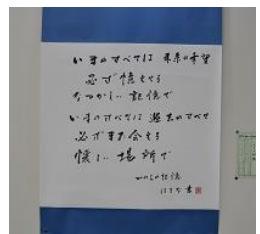 いまのすべては 未来の希望
必ず憶えてる
なつかしい 記憶で
いまのすべては 過去のすべて
必ずまた会える
懐しい 場所で
いのちの記憶